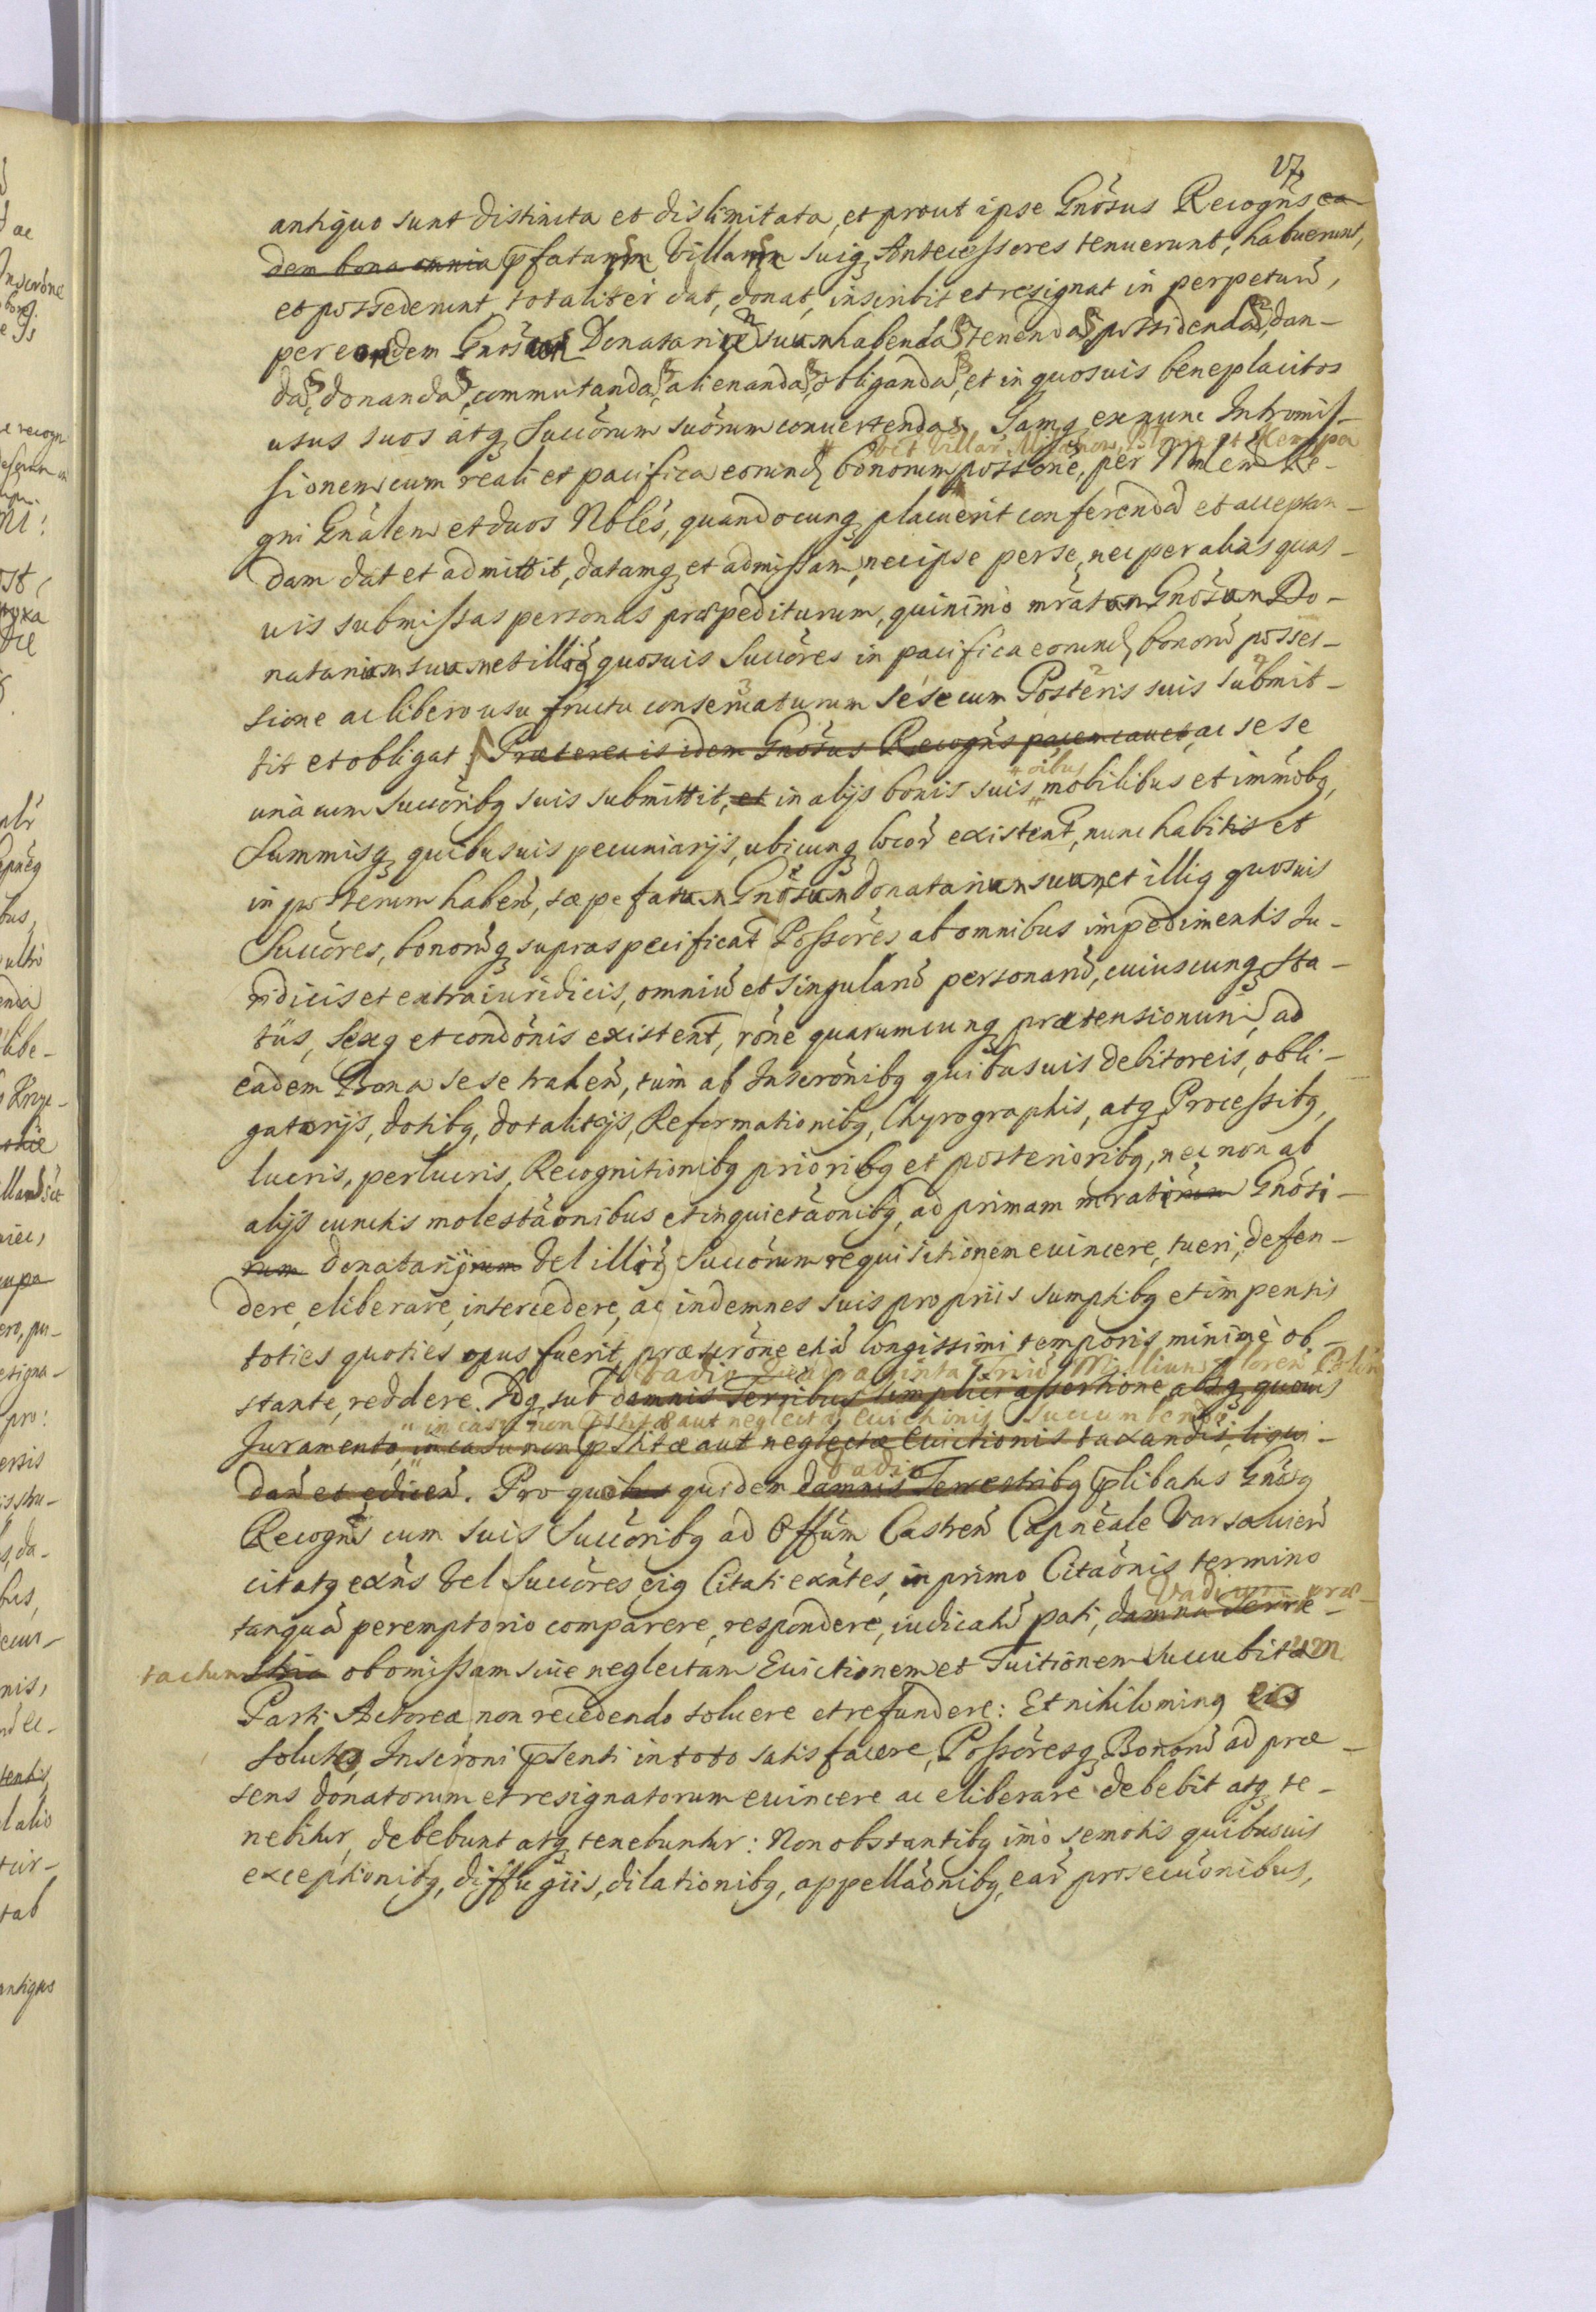 17.
antiquo sunt distincta et dislimitata, et prout ipse Gnosus Recogns ea
dem bona omnia pfatam Villam suiq Antecessores tenuerunt, habuerunt,
et possederunt, totaliter dat, donat, inscribit et resignat in perpetuu,
per eundem Gnosum Donatarium suum habenda, tenenda, possidenda, dan-
da, donanda, commutanda, alienanda, obliganda, et in quosuis beneplacitos
usus suos atq Succorum suorum conuertenda. Iamq exnunc Intromis-
vel Villar et Kempa
sionem cum reali et pacifica eorund bonorum possone, per Mnlem Re-
gni Gnalem et duos Nobles, quandocunq placuerit conferendam et acceptan-
dam dat et admittit, datamq et admissam, nec ipse per se, nec per alias quas-
uis submissas personas praepediturum, quinimo mratum Gnosum Do-
natarium suum et illiq quosuis Succores in pacifica eorund bonoru posses-
sione ac libero usu fructu conseruaturum sese cum Posteris suis submit-
tit et obligat. Praeterea is idem Gnosus Recogns pacem cauet, ac sese
oibus
una cum Succoribq suis submittit, et in alijs bonis suis mobilibus et immobq,
Summisq quibusuis pecuniarijs, ubicunq locor existent, nunc habitis et
in posterum haben, saepefatum Gnosum donatarium suum, et illiq quosuis
Succores, bonorq supraspecificat Possores ab omnibus impedimentis Iu-
ridicis et extraiuridicis, omniu et singularu personaru, cuiuscunq sta-
tus, sexq et condonis existent, rone quarumcunq praetensionum, ad
eadem Bona sese trahen, tum ab Inscronibq quibusuis debitoreis, obli-
gatorijs, dotibq, dotalitijs, Reformationibq, Chyrographis, atq Processibq,
lucris, perlucris, Recognitionibq prioribq et posterioribq, nec non ab
alijs cunctis molestaonibus et inquietaonibq, ad primam mrati Gnosi-
rum donatarij vel illiq Succorum requisitionem euincere, tueri, defen-
dere, eliberare, intercedere, ac indemnes suis propriis sumptibq et impensis
toties quoties opus fuerit, praescrone etia longissimi temporis minime ob-
vadio Quadraginta Triu Millium floren Polon
stante, reddere. Idq sub damnis Terribus simplici assertione absq quouis
in casu non pstitae aut neglectae euictionis succumbendi
Juramento, in casu non pstitae aut neglectae euictionis taxandis, liqui-
vadio
dan et edicen. Pro quo quidem damnis Terrestribq plibatus Gnosq
Recogns cum suis Succoribq ad Offum Castren Capneale Varsauien
citatq exns vel Succores eiq Citati exntes, in primo Citaonis termino
Vadium prae-
tanqua peremptorio comparere, respondere, iudicatu pati, damna Terre-
tactum stria ob omissam siue neglectam Euictionem et Tuitionem succubitum
Parti Actorea non recedendo soluere et refundere: Et nihilominq eo
soluto, Inscroni psenti in toto satisfacere, Possoresq Bonoru ad prae-
sens donatorum et resignatorum euincere ac eliberare debebit atq te-
nebitur, debebunt atq tenebuntur: Non obstantibq imo semotis quibusuis
exceptionibq, diffugiis, dilationibq, appellaonibq, ear prosecuonibus,